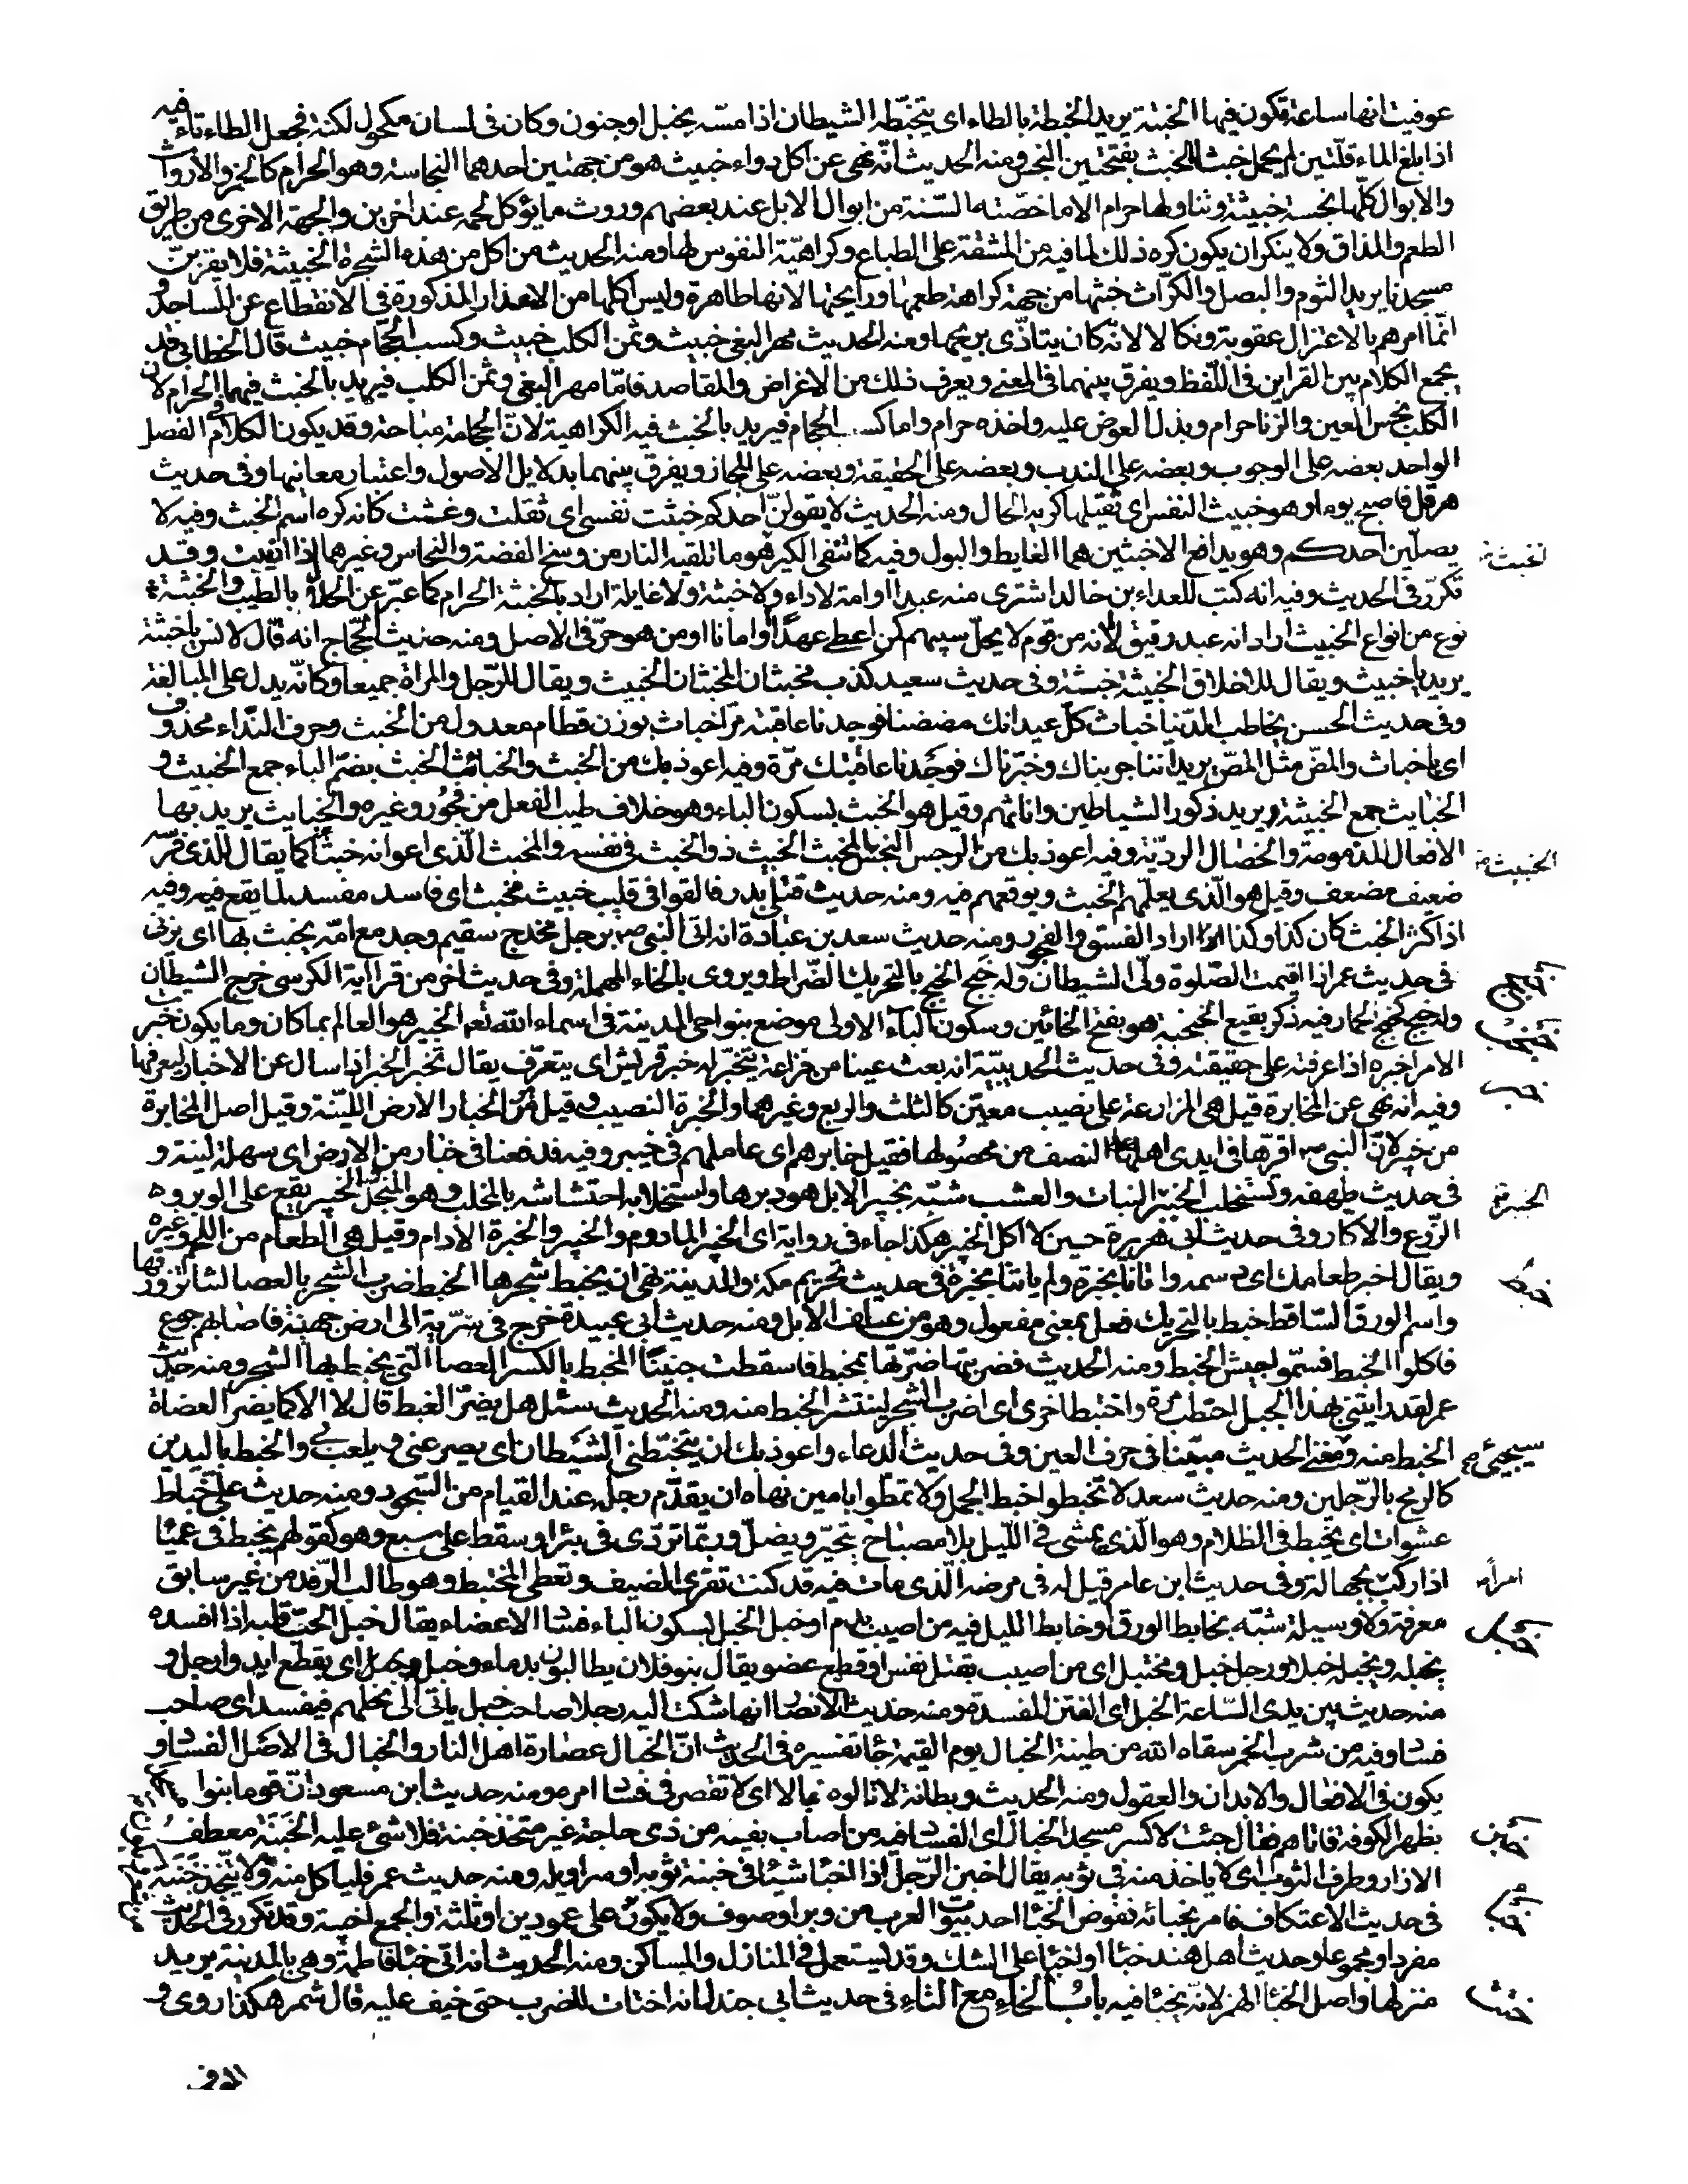 عوفيت انها ساعة تكون فيها الخبتة يريد الخبطة بالطاء اى يتخبّطه الشيطان اذا مسّه بخبل او جنون وكان فى لسان مكحول لكنة فجعل الطاء تاء فيه
اذا بلغ الماء قلّتين لم يحمل خبثا الخبث بفتحتين النجس ومنه الحديث انّه نهى عن اكل دواء خبيث هو من جهتين احدهما النجاسة وهو الحرام كالخمر والارواث
والابوال كلّها نجسة خبيثة وتناولها حرام الا ما خصّته السّنة من ابوال الابل عند بعضهم وروث ما يؤكل لحمه عند اخرين والجهة الاخرى من طريق
الطعم والمذاق ولا ينكر ان يكون كره ذلك لما فيه من المشقة على الطباع وكراهيّة النفوس لها ومنه الحديث من اكل من هذه الشجرة الخبيثة فلا يقربنّ
مسجدنا يريد الثوم والبصل والكرّاث خبثها من جهة كراهة طعمها ورايحتها لانها طاهرة وليس اكلها من الاعذار المذكورة فى الانقطاع عن المساجد و
انّما امرهم بالاعتزال عقوبة ونكالا لانّه كان يتاذّى بريحها ومنه الحديث مهر البغى خبيث وثمن الكلب خبيث وكسب الحجّام خبيث قال الخطابى قد
يجمع الكلام بين القراين فى اللّفظ ويفرق بينهما فى المعنى ويعرف ذلك من الاغراض والمقاصد فامّا مهر البغى وثمن الكلب فيريد بالخبث فيهما الحرام لان
الكلب نجس العين والزنا حرام وبذل العوض عليه واخذه حرام واما كسب الحجام فيريد بالخبث فيه الكراهية لانّ الحجامة مباحة وقد يكون الكلام فى الفصل
الواحد بعضه على الوجوب وبعضه على الندب وبعضه على الحقيقة وبعضه على المجاز ويفرق بينهما بدلايل الاصول واعتبار معانيها وفى حديث
هرقل فاصبح يوما وهو خبيث النفس اى ثقيلها كريه الحال ومنه الحديث لا يقولنّ احدكم خبثت نفسى اى ثقلت وغثت كانه كره اسم الخبث وفيه لا
يصلّين احدكم وهو يدافع الاخبثين هما الغايط والبول وفيه كما تنفى الكير هو ما تلقيه النار من وسخ الفضة والنحاس وغيرها اذا اذيبت وقد
تكرّر فى الحديث وفيه انه كتب للعداء بن خالد اشترى منه عبدا او امة لا داء ولا خبثة ولا غايلة اراد بالخبثة الحرام كما عبّر عن الحلال بالطيب والخبثة
نوع من انواع الخبيث اراد انه عبد رقيق لا انه من قوم لا يحلّ سبيهم كمن اعطى عهدًا او امانا او من هو حرّ فى الاصل ومنه حديث الحجّاج انه قال لانس يا خبثة
يريد يا خبيث ويقال للاخلاق الخبيثة خبثة وفى حديث سعيد كذب مخبثان المخبثان الخبيث ويقال للرّجل والمراة جميعا وكانّه يدل على المبالغة
وفى حديث الحسن يخاطب الدّنيا خباث كلّ عيدانك مضضنا فوجدنا عاقبته مرّا خباث بوزن قطام معدول من الخبث وحرف النّداء محذوف
اى يا خباث والمضّ مثل المصّ يريد اننا جربناك وخبّرناك فوجدنا عاقبتك مرّة وفيه اعوذ بك من الخبث والخبائث الخبث بضمّ الباء جمع الخبيث و
الخبايث جمع الخبيثة ويريد ذكور الشياطين واناثهم وقيل هو الخبث بسكون الباء وهو خلاف طيب الفعل من فجُور وغيره والخبايث يريد بها
الافعال المذمومة والخصال الرديّة وفيه اعوذ بك من الرجس النجس الخبيث المخبث الخبيث ذو الخبث فى نفسه والمخبث الّذى اعوانه خبثا كما يقال للذى فرسه
ضعيف مضعف وقيل هو الّذى يعلّمهم الخبث ويوقعهم فيه ومنه حديث قتلى بدر فالقوا فى قليب خبيث مخبث اى فاسد مفسد لما يقع فيه وفيه
اذا كثر الخبث كان كذا وكذا اراد الفسق والفجور ومنه حديث سعد بن عبادة انه اتى النبى صم برجل مخدج سقيم وجد مع امّه يخبث بها اى يزنى
فى حديث عمر اذا اقيمت الصّلوة ولّى الشيطان وله خبج الخبج بالتحريك الضّراط ويروى بالحاء المهملة وفى حديث اخر من قرا اية الكرسى خرج الشيطان
وله خبج كخبج الحمار فيه ذكر بقيع الخبخبة هو بفتح الخائين وسكون الباء الاولى موضع بنواحى المدينة فى اسماء الله تعم الخبير هو العالم بما كان وما يكون خبرت
الامر اخبره اذا عرفته على حقيقته وفى حديث الحديبيّة انه بعث عينا من خزاعة يتخبّر له خبر قريش اى يتعرّف يقال تخبر الخبر اذا سال عن الاخبار ليعرفها
وفيه انه نهى عن المخابرة قيل هى المزارعة على نصيب معيّن كالثلث والربع وغيرهما والخبرة النصيب وقيل هو من الخبار الارض الليّنة وقيل اصل المخابرة
من خيبر لانّ النبى صم اقرّها فى ايدى اهلها على النصف من محصُولها فقيل خابرهم اى عاملهم فى خيبر وفيه فدفعنا فى خبار من الارض اى سهلة لينة و
فى حديث طهفه ونستخلب الخبير الخبير النبات والعشب شبّه بخبير الابل هو وبرها واستخلابه احتشاشه بالمخلب وهو المنجل والخبير يقع على الوبر وه
الزّرع والاكار وفى حديث ابى هريرة حين لا اكل الخبير هكذا جاء فى رواية اى الخبز الماروم والخبير والخبرة الادام وقيل هى الطعام من اللحم وغيره
ويقال اخبر طعامك اى دسمه واتانا بخبزة ولم ياتنا بخبرة فى حديث تحريم مكة والمدينة نهى ان يخبط شجرها الخبط ضرب الشجر بالعصا لتناثر ورقها
واسم الورق السّاقط خبط بالتحريك فعل بمعنى مفعول وهو من علف الابل ومنه حديث ابى عبيدة خرج فى سريّة الى ارض جهينة فاصابهم جوع
فاكلوا الخبط فسمّو جيش الخبط ومنه الحديث فضربتها ضرّتها بمخبط فاسقطت جنينًا المخبط بالكسر العصا التى يخبط بها الشجر ومنه حديث
عمر لقد رايتنى بهذا الجبل احتطب مرّة واختبط اخرى اى اضرب الشجر لينتثر الخبط منه ومنه الحديث سئل هل يضرّ الغبط قال لا الا كما يضر العضاة
الخبط منه ومعنى الحديث مبيّنا فى حرف العين وفى حديث الدعاء واعوذ بك ان يتخبّطنى الشيطان اى يصرعنى ويلعب بى والخبط باليدين
كالرمح بالرّجلين ومنه حديث سعد لا تخبطوا خبط الجمل ولا تمطوا بامين نهاه ان يقدّم رجله عند القيام من السّجود ومنه حديث على خبّاط
عشوات اى يخبط فى الظلام وهو الّذى يمشى فى اللّيل بلا مصباح يتحيّر ويضلّ وربّما تردّى فى بئر او سقط على سبع وهو كقولهم يخبط فى عميا
اذا ركب بجهالة وفى حديث ابن عامر قيل له فى مرضه الّذى مات فيه قد كنت تقرى الضيف وتعطى المختبط وهو طالب الرّفد من غير سابق
معرفة ولا وسيلة شبّه بخابط الورق او خابط الليل فيه من اصيب بدم او خبل الخبل بسكون الباء فساد الاعضاء يقال خبل الحبّ قلبه اذا افسده
يخبله ويخبله خبلا ورجل خبل ومختبل اى من اصيب بقتل نفس او قطع عضو يقال بنو فلان يطالبون بدماء وخبل اى يقطع ايد وارجل و
منه حديث بين يدى السّاعة الخبل اى الفتن المفسدة ومنه حديث الانصار انها شكت اليه رجلا صاحب خبل ياتى الى نخلهم فيفسد اى صاحب
فساد وفيه من شرب الخمر سقاه الله من طينة الخبال يوم القيمة جا تفسيره فى الحديث انّ الخبال عصارة اهل النار والخبال فى الاصل الفساد و
يكون فى الافعال والابدان والعقول ومنه الحديث وبطانة لا تالوه خبالا اى لا تقصر فى فساد امره ومنه حديث ابن مسعود انّ قوما بنوا
بظهر الكوفة فاتاهم فقال جئت لاكسر مسجد الخبال اى الفساد فيه من اصاب بفيه من ذى حاجة غير متخذ خبنة فلا شئ عليه الخبنة معطف
الازار وطرف الثوب اى لا ياخذ منه فى ثوبه يقال اخبن الرّجل اذا خبا شيئا فى خبنة ثوبه او سراويله ومنه حديث عمر فلياكل منه ولا يتّخذ خبنة
فى حديث الاعتكاف فامر بخبائه فقوض الخبا احد بيوت العرب من وبر او صوف ولا يكون على عمودين او ثلثة والجمع اخبية وقد تكرّر فى الحديث
مفردا ومجموعا وحديث اهل هند خبا او اخبا على الشك وقد يستعمل فى المنازل والمساكن ومنه الحديث انه اتى خبا فاطمة وهى بالمدينة يريد
منزلها واصل الخبا الهمز لانّه يختبا فيه بابُ الخاء مع التاء فى حديث ابى جندل انه اختات للضرب حتى خيف عليه قال شمر هكذا روى و
الخبيث
خبج
خبخب
خبر
خبط
سيجيئ
امرأ
خبل
خبن
خبا
ختت